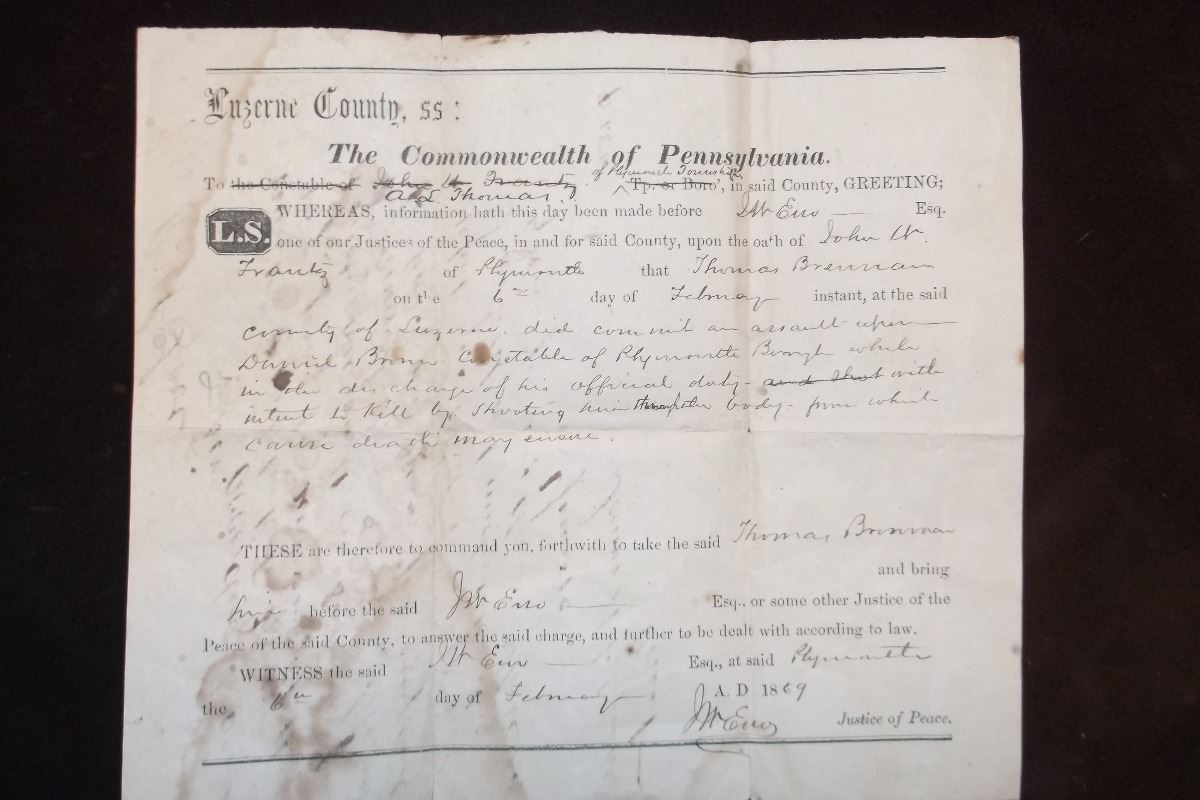 Luzerne County, ss:
The Commonwealth of Pennsylvania.
of Plymouth Township
To the Constable of John W. Frantz Tp. or Boro', in said County, GREETING;
Thomas
WHEREAS, information hath this day been made before J W Eno Esq.
L.S. one of our Justices of the Peace, in and for said County, upon the oath of John W.
Frantz of Plymouth that Thomas Brennan
on the 6th day of February instant, at the said
county of Luzerne. did commit an assault upon
Daniel Brown Constable of Plymouth Borough while
in the discharge of his official duty - and shoot with
intent to kill by shooting him through the body - from which
cause death may ensue.
THESE are therefore to command you, forthwith to take the said Thomas Brennan
and bring
him before the said J W Eno Esq., or some other Justice of the
Peace of the said County, to answer the said charge, and further to be dealt with according to law.
WITNESS the said J W Eno Esq., at said Plymouth
the 6th day of February A. D 1869
J W Eno Justice of Peace.